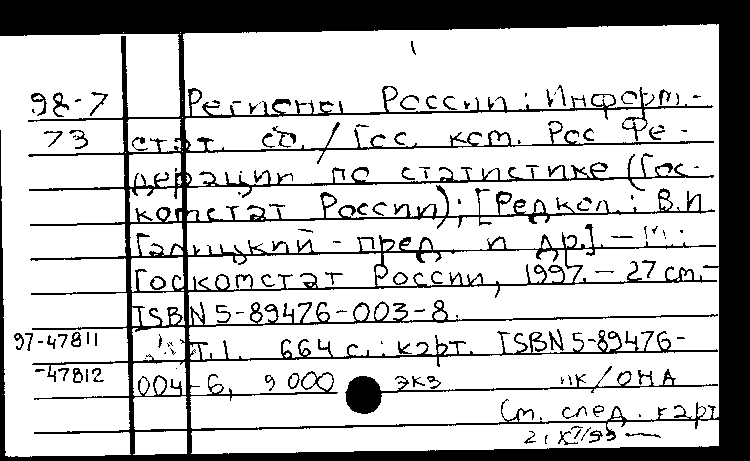 98-7 Регионы России: Информ.-
73 стат. сб. / Гос. ком. Рос Фе-
дерации по статистике (Гос-
комстат России); [Редкол.: В.И
Галицкий - пред. и др.]. - М.:
Госкомстат России, 1997. - 27 см. -
ISBN 5-89476-003-8.
97-47811 Т.1. 664 с.: карт. ISBN 5-89476-
-47812 004-6, 9 000 экз ПК/ОНА
См. след. карт